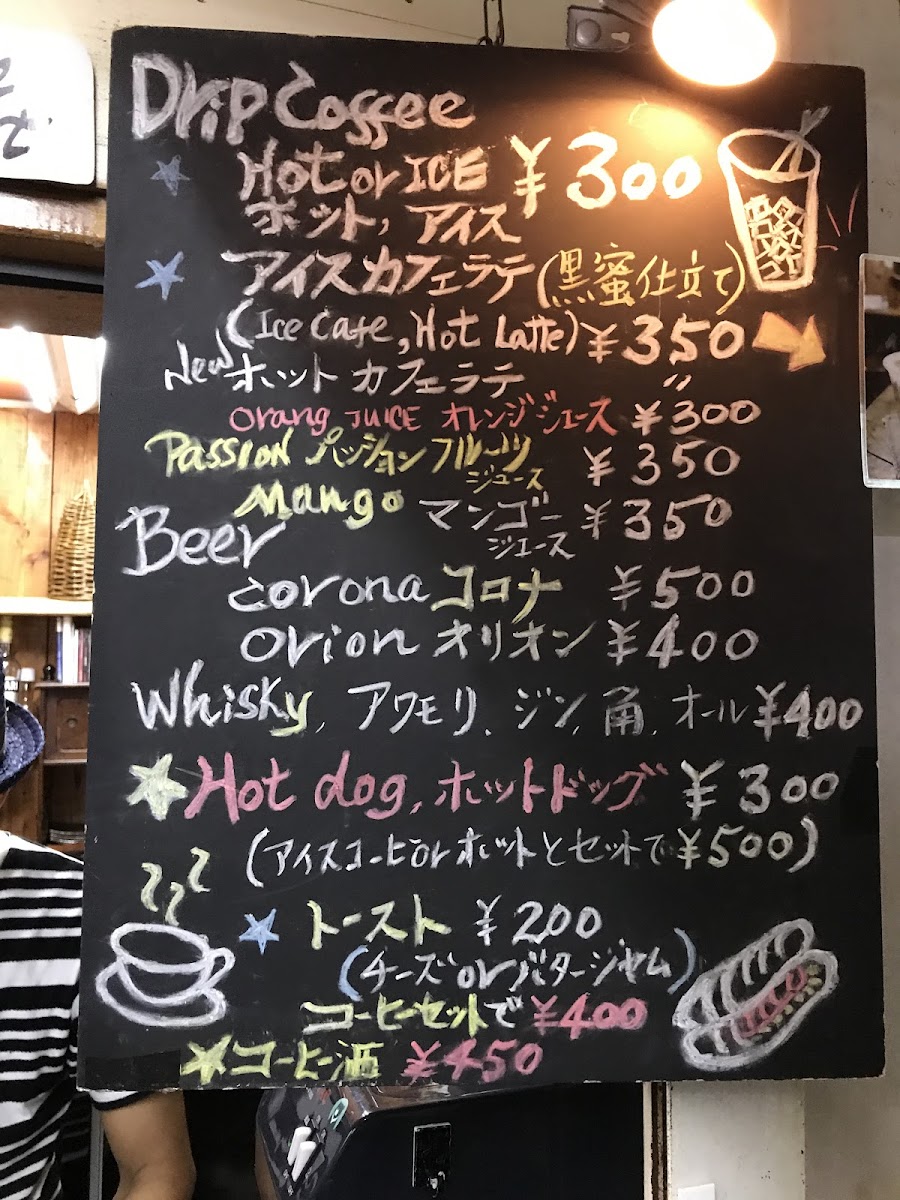 Drip Coffee
Hot or ICE ¥300
ホット, アイス
アイスカフェラテ(黒蜜仕立て)
(Ice Cafe, Hot Latte) ¥350
New ホットカフェラテ 〃
Orang JUICE オレンジジュース ¥300
PASSION パッションフルーツ ¥350
ジュース
Mango マンゴー ¥350
ジュース
Beer
corona コロナ ¥500
orion オリオン ¥400
Whisky, アワモリ, ジン, 角, オール ¥400
Hot dog, ホットドッグ ¥300
(アイスコーヒorホットとセットで¥500)
トースト ¥200
(チーズorバタージャム)
コーヒーセットで¥400
コーヒー酒 ¥450